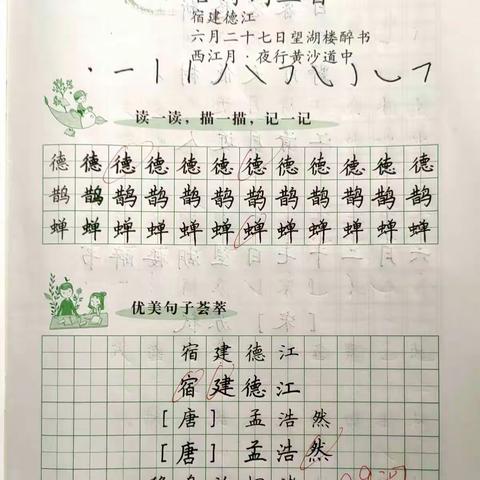 宿建德江
六月二十七日望湖楼醉书
西江月·夜行黄沙道中
读一读,描一描,记一记
德 德 德 德 德 德 德 德 德 德 德 德
鹊 鹊 鹊 鹊 鹊 鹊 鹊 鹊 鹊 鹊 鹊 鹊
蝉 蝉 蝉 蝉 蝉 蝉 蝉 蝉 蝉 蝉 蝉 蝉
优美句子荟萃
宿建德江
宿建德江
[唐] 孟浩然
[唐] 孟浩然